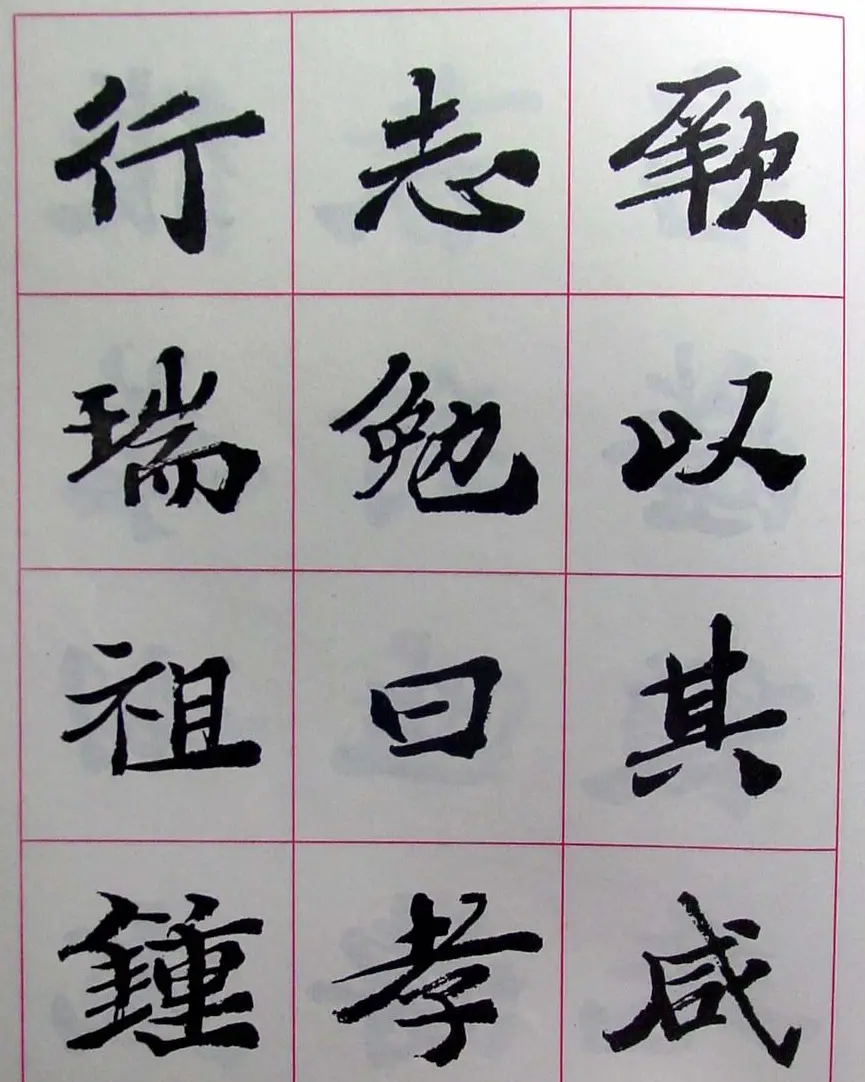 厥以其咸
志勉曰孝
行瑞祖鍾